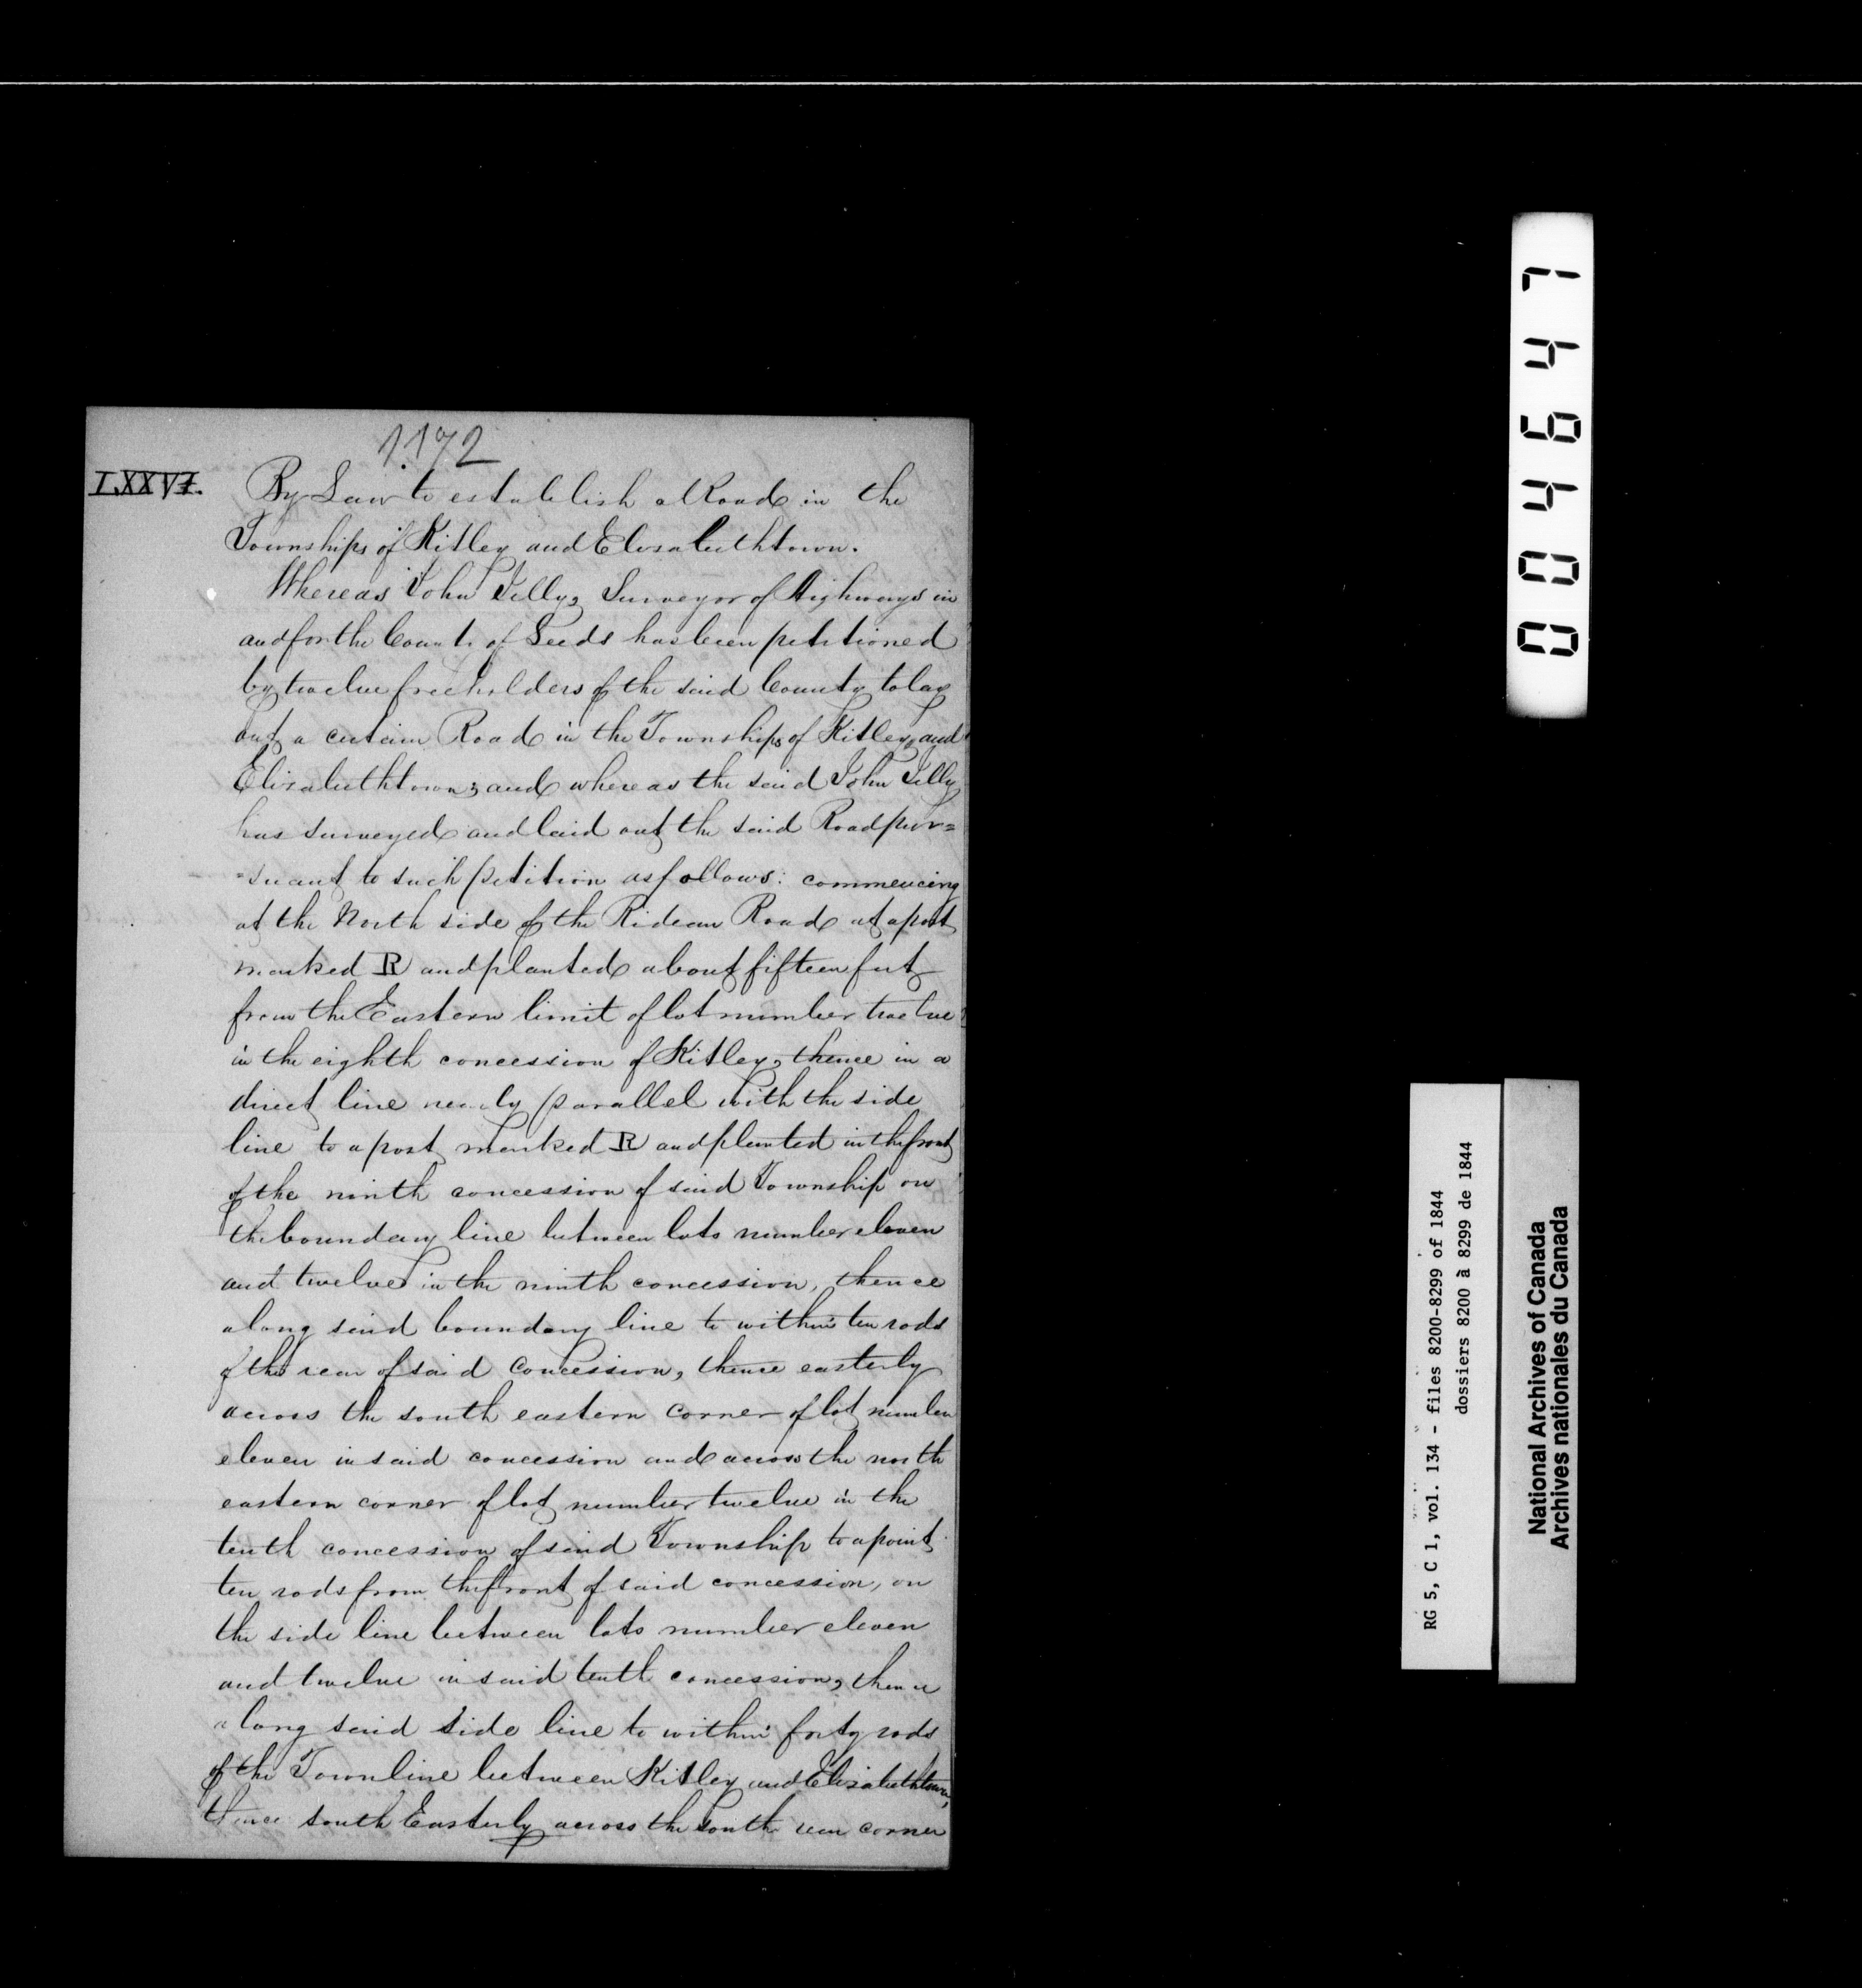 1172
LXXVI. By Law to establish a Road in the
Townships of Kitley and Elizabethtown.
Whereas John Jelly, Surveyor of Highways in
and for the County of Leeds has been petitioned
by twelve freeholders of the said County to lay
out a certain Road in the Townships of Kitley and
Elizabethtown; and whereas the said John Jelly
has surveyed and laid out the said Road pur=
=suant to such petition as follows: commencing
at the North side of the Rideau Road at a post
marked R and planted about fifteen feet
from the Eastern limit of lot number twelve
in the eighth concession of Kitley, thence in a
direct line nearly parallel with the side
line to a post marked R and planted in the front
of the ninth concession of said Township on
the boundary line between lots number eleven
and twelve in the ninth concession, thence
along said boundary line to within ten rods
of the rear of said Concession, thence easterly
across the south eastern corner of lot number
eleven in said concession and across the north
eastern corner of lot number twelve in the
tenth concession of said Township to a point
ten rods from the front of said concession, on
the side line between lots number eleven
and twelve in said tenth concession, thence
along said side line to within forty rods
of the Townline between Kitley and Elizabethtown,
thence south Easterly across the south rear corner
004647
RG 5, C 1, vol. 134 - files 8200-8299 of 1844
dossiers 8200 à 8299 de 1844
National Archives of Canada
Archives nationales du Canada